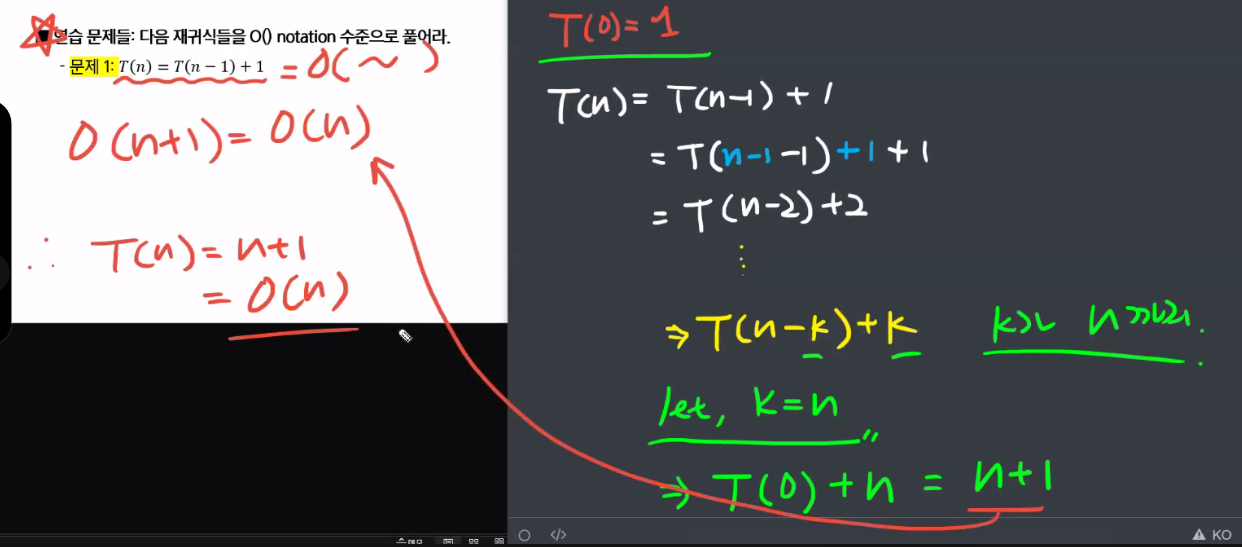 연습 문제들: 다음 재귀식들을 O() notation 수준으로 풀어라.
- 문제 1: T(n) = T(n − 1) + 1 = O( ~ )
O(n+1) = O(n)
∴ T(n) = n+1
= O(n)
T(0) = 1
T(n) = T(n-1) + 1
= T(n-1-1) +1 + 1
= T(n-2) +2
⋮
⇒ T(n-k) + k
let, k=n
⇒ T(0) + n = n+1
</> KO